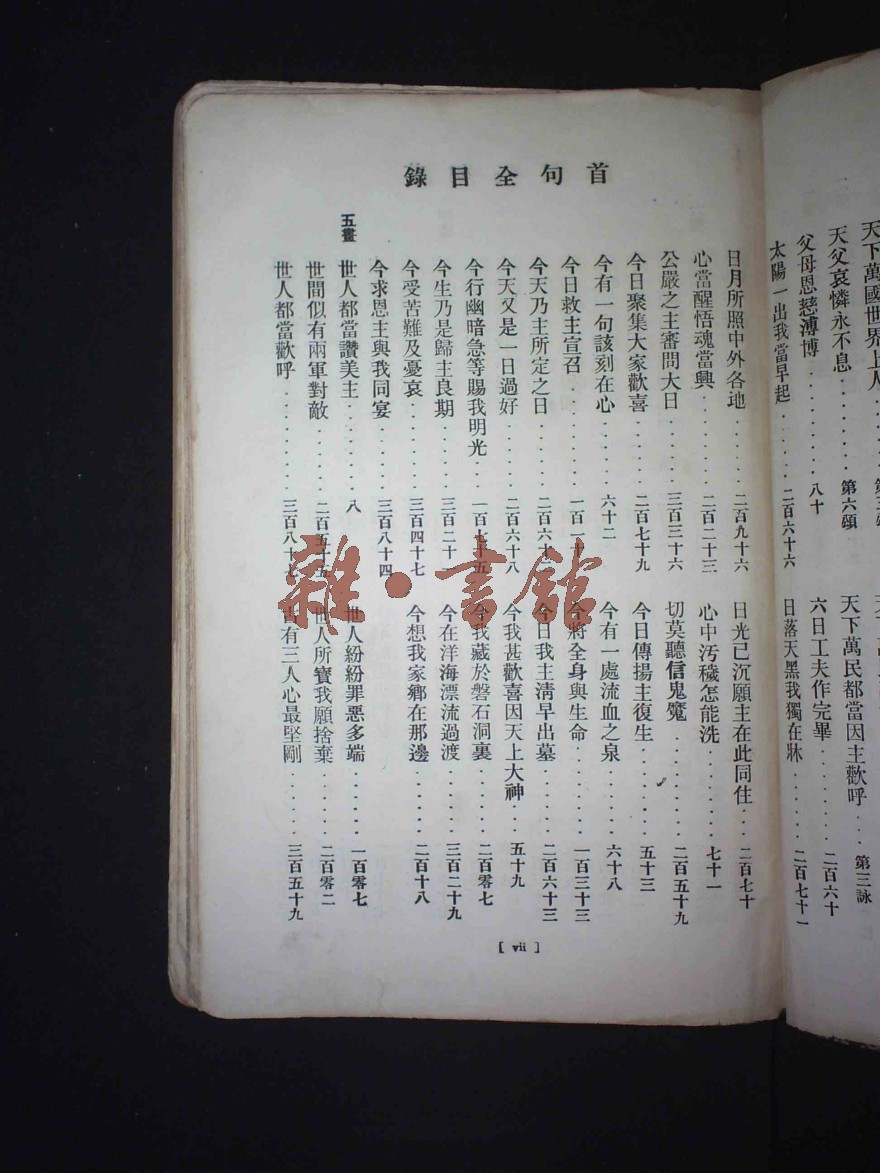 首句全目錄
日月所照中外各地 . . . . . 二百九十六
心當醒悟魂當興 . . . . . . 二百二十三
公嚴之主審問大日 . . . . . 三百三十六
今日聚集大家歡喜 . . . . . 二百七十九
今有一句該刻在心 . . . . . 六十二
今日救主宣召 . . . . . . . 一百一十
今天乃主所定之日 . . . . . 二百六十
今天又是一日過好 . . . . . 二百六十八
今行幽暗急等賜我明光 . . . 一百七十五
今生乃是歸主良期 . . . . . 三百二十
今受苦難及憂哀 . . . . . . 三百四十七
今求恩主與我同宴 . . . . . 三百八十四
五畫
世人都當讚美主 . . . . . . 八
世間似有兩軍對敵 . . . . . 二百五十五
世人都當歡呼 . . . . . . . 三百八十七
日光已沉願主在此同住 . . . 二百七十
心中汚穢怎能洗 . . . . . . 七十一
切莫聽信鬼魔 . . . . . . . 二百五十九
今日傳揚主復生 . . . . . . 五十三
今有一處流血之泉 . . . . . 六十八
今將全身與生命 . . . . . . 一百三十三
今日我主淸早出墓 . . . . . 二百六十三
今我甚歡喜因天上大神 . . . 五十九
今我藏於磐石洞裏 . . . . . 二百零七
今在洋海漂流過渡 . . . . . 三百二十九
今想我家鄉在那邊 . . . . . 二百十八
世人紛紛罪惡多端 . . . . . 一百零七
世人所寶我願捨棄 . . . . . 二百零二
古有三人心最堅剛 . . . . . 三百五十九
[ vii ]
天下萬國世界上人
天父哀憐永不息 . . . . . . 第六頌
父母恩慈溥博 . . . . . . . 八十
太陽一出我當早起 . . . . . 二百六十六
天下萬民都當因主歡呼 . . . 第三詠
六日工夫作完畢 . . . . . . 二百六十
日落天黑我獨在牀 . . . . . 二百七十一
雜·書館